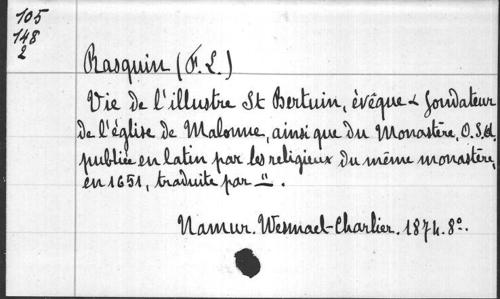 105
148
2
Rasquin (F. L.)
Vie de l'illustre St Bertuin, évêque & fondateur
de l'église de Malonne, ainsi que du Monastère, O.S.A.
publiée en latin par les religieux du même monastère,
en 1651, traduite par =".
Namur. Wesmael-Charlier. 1874. 8º.